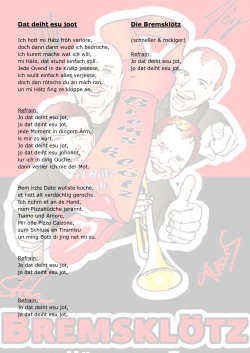 Dat deiht esu joot
Die Bremsklötz
(schneller & rockiger)
Ich hott mi Hätz fröh verlore,
doch dann dann wudd ich bedroche,
ich kunnt mache wat ich will,
mi Hätz, dat stund einfach still.
Jede Ovend in de Kneip jesesse,
ich wullt einfach alles verjesse,
doch den rötschs du an mich ran,
un mi Hätz fing ze kloppe an.
Refrain:
Jo dat deiht esu jot,
jo dat deiht esu jot,
jede Moment in dingem Ärm,
is mir so zo kurt.
Jo dat deiht esu jot,
jo dat deiht esu johohot,
lur ich in ding Ouche,
dann verlier ich nie der Mot.
Refrain:
Jo dat deiht esu jot,
jo dat deiht esu jot,
...
Bem irzte Date wullste koche,
et hatt alt verdächtig geroche.
Ich kohm et an de Hand,
nem Pizzabüdche jerannt.
Tiamo und Amore,
Mir öße Pizza Calzone,
zum Schluss en Tiremisu
un ming Botz di jing net mi zu.
Refrain:
Jo dat deiht esu jot,
jo dat deiht esu jot,
...
Refrain:
Jo dat deiht esu jot,
jo dat deiht esu jot,
BREMSKLÖTZ